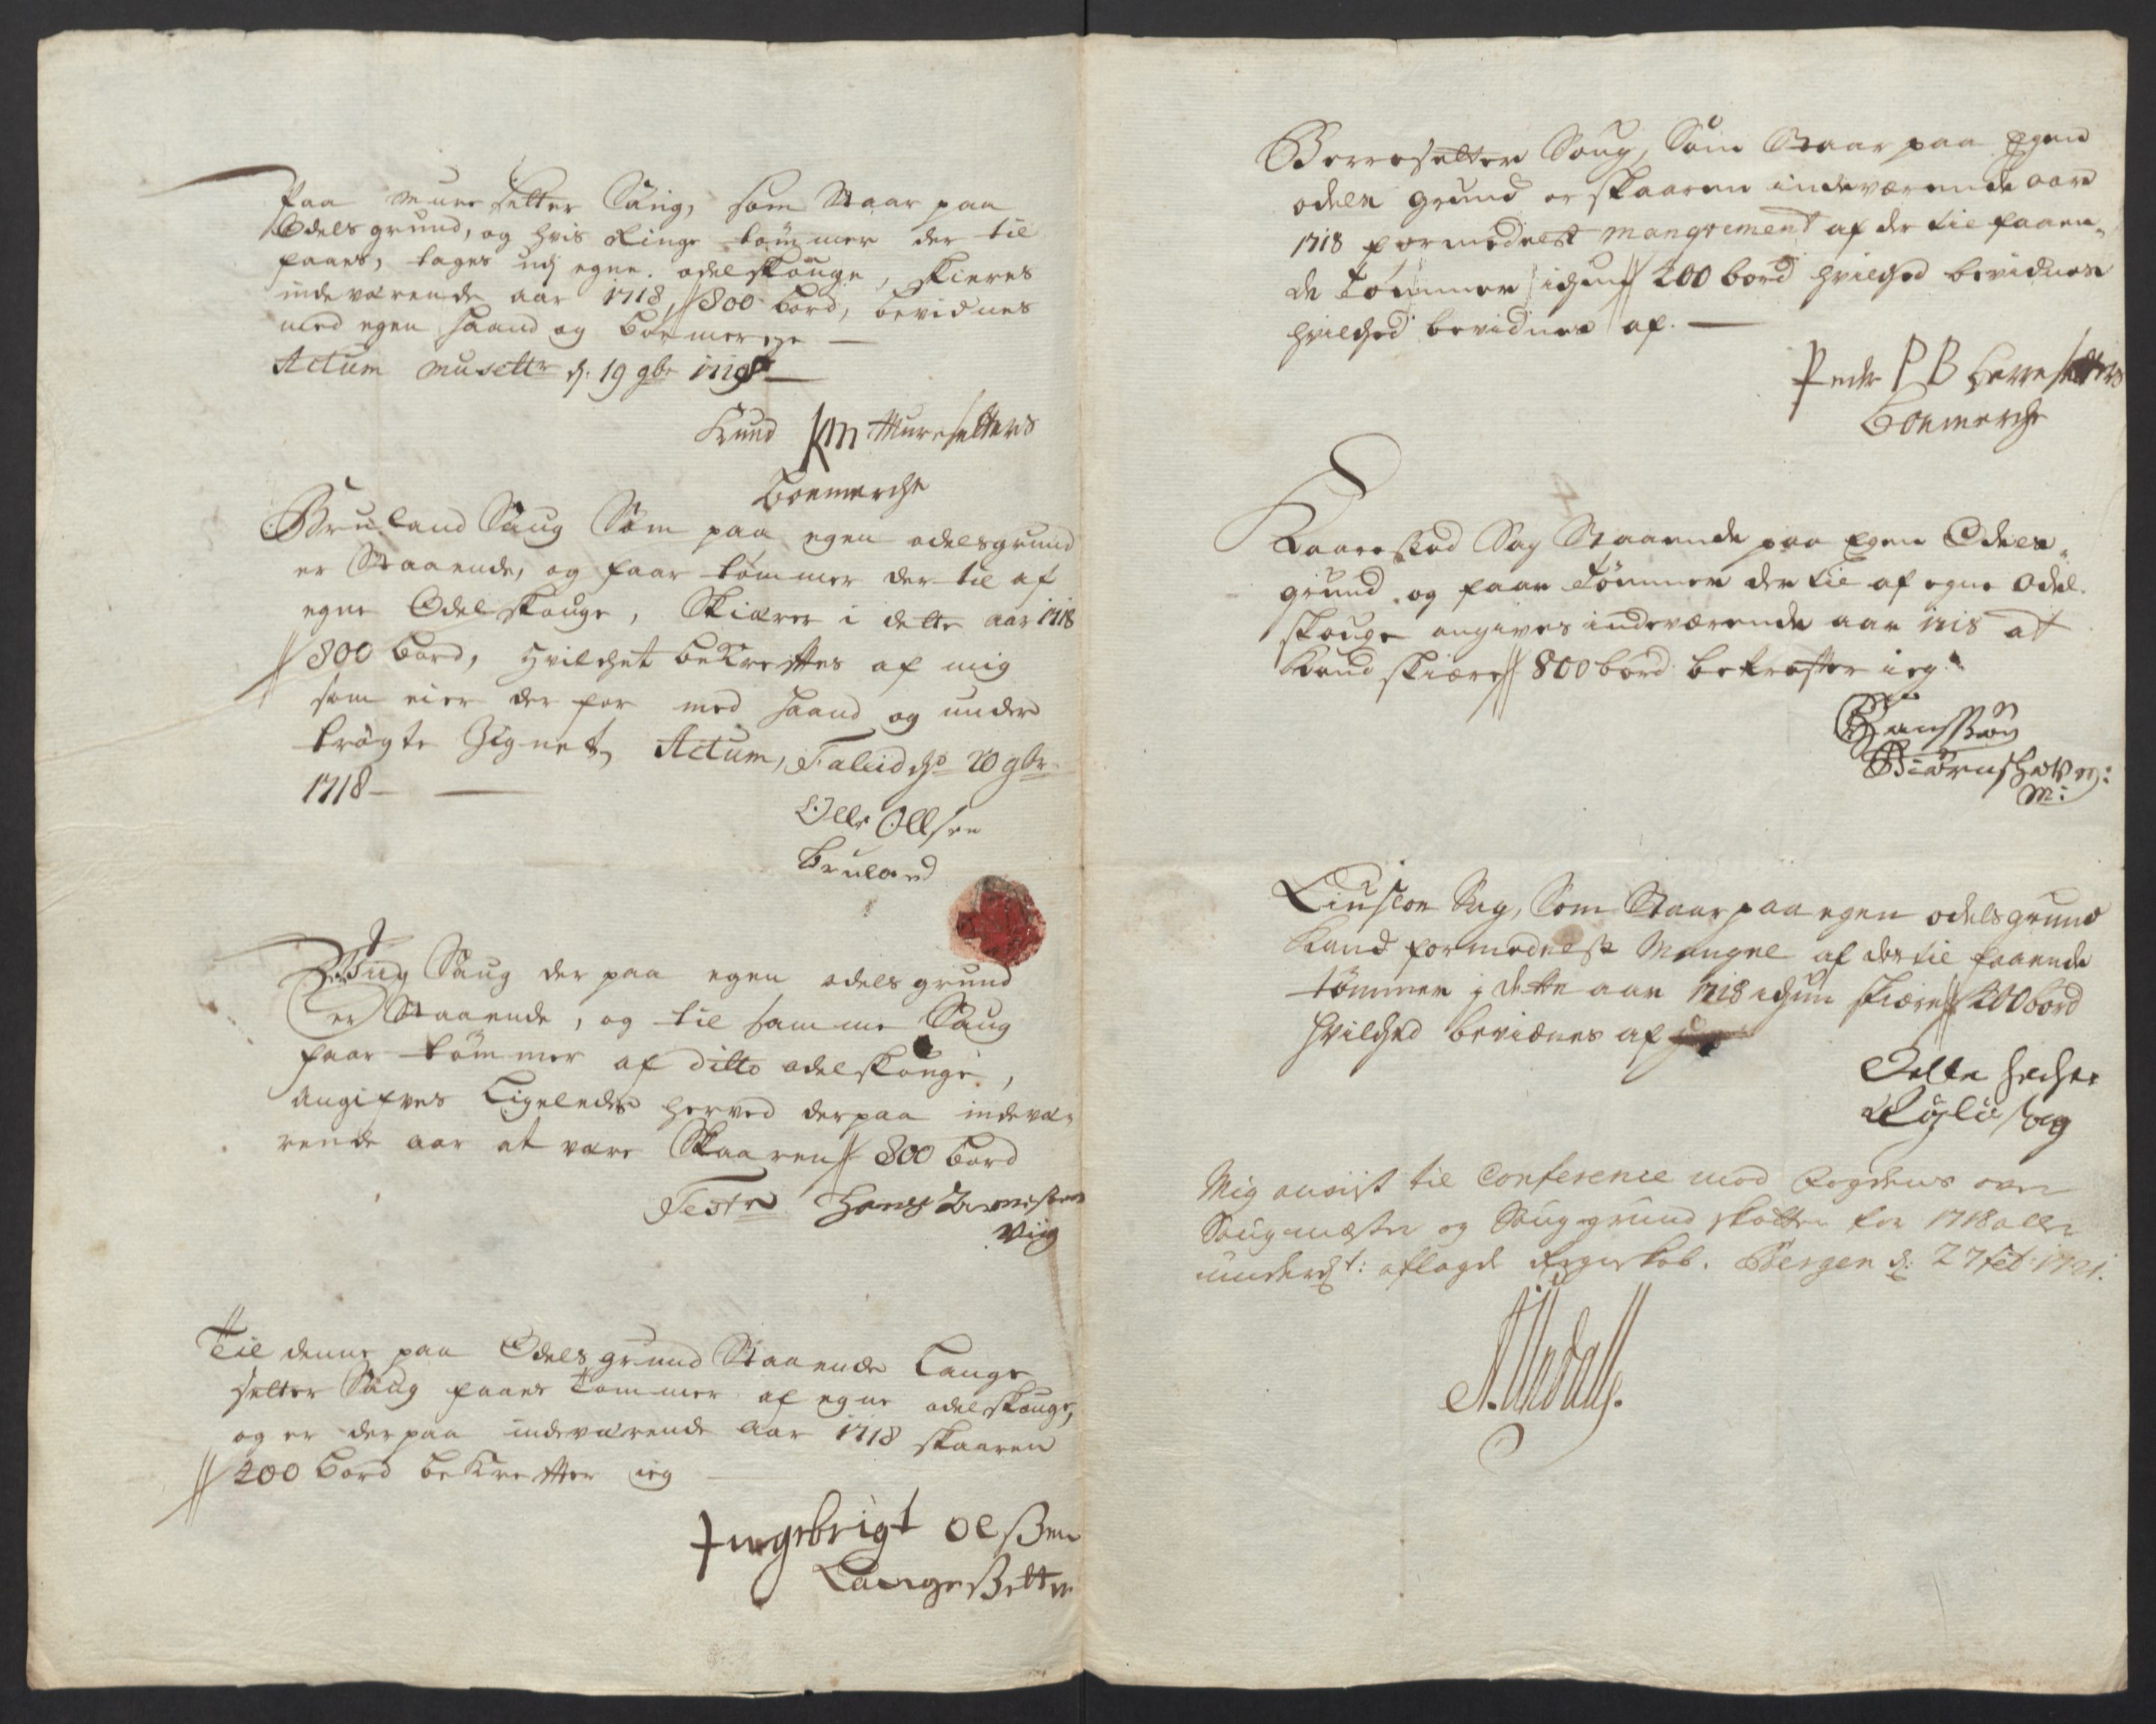 Paa Mure Setter Saug, som Staar paa
Odels grund, og hvis Ringe tømmer der til
faaes, tages udj egne odelskouge, skieres
indeværende aar 1718, 800 bord, bevidnes
med egen haand og boemercke
Actum Musettr d. 19 9br 1718
Knud KM Muresetters
boemerche
Bruland Saug Som paa egen odelsgrund
er Staaende, og faar tømmer der til af
egne Odelskouge, Skiærer i dette aar 1718
800 bord, hvilchet bekreftes af mig
som eier der for med haand og under
trögte Zignet, Actum, 20 9br
1718
Olle Ollsen
Bruland
Viig Saug der paa egen odelsgrund
er Staaende, og til samme Saug
faar tømmer af ditto odelskouge,
angifves Ligeledes herved derpaa indevæ-
rende aar at være Skaaren 800 bord
Test Hans
Viig
Til denne paa Odels grund Staaende Lange
setter Saug faaes Tømmer af egne odelskouge,
og er derpaa indeværende aar 1718 skaaren
200 bord bekrefter ieg
Ingebrigt Olssen
Langesetter
Saug, Som Staar paa Egen
odels grund er skaaren indeværende aar
1718 formedelst mangvement af der til faaen-
de Tømmer ichun 200 bord hvilched bevidnes
hvilched bevidnes af.
Peder PB
Boemerche
Sag Staaende paa Egen Odels-
grund og faar Tømmer der til af egne Odel-
skouge angives indeværende aar 1718 at
kand skiære 800 bord bekrefter ieg
Sag, Som Staar paa egen odelsgrund
kand formedelst Mangel af der til faaende
tømmer j dette aar 1718 ichun skiære 200 bord
hvilched bevidnes af
Mig anvist til Conference med Fogdens over
Saugmester og Sauggrund skatten for 1718 aller
underdt: aflagde Regenskab. Bergen d: 27 feb: 1721.